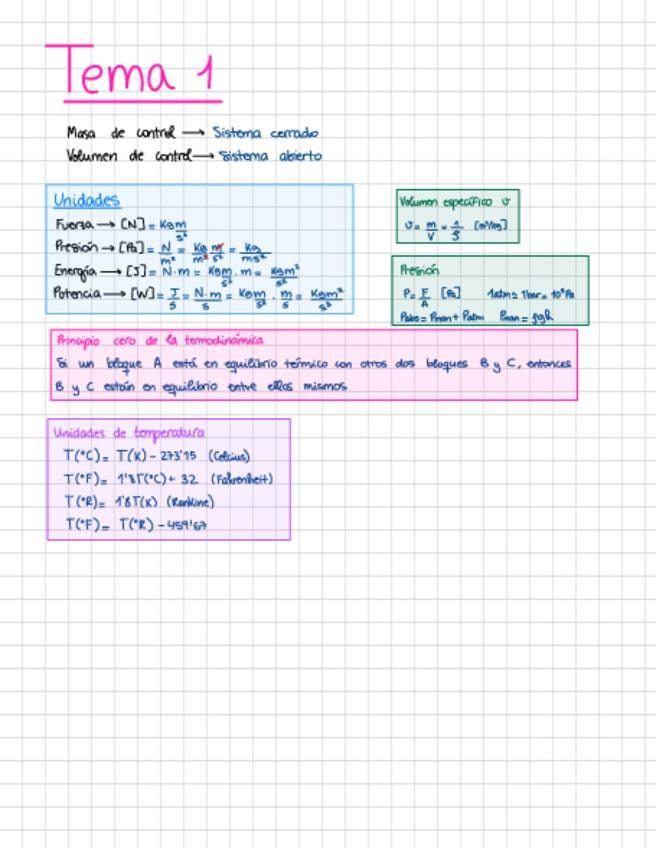 Tema 1
Masa de control → Sistema cerrado
Volumen de control → Sistema abierto
Unidades
Fuerza → [N] = Kg m/s²
Presión → [Pa] = N/m² = Kg m/m² s² = Kg/m s²
Energía → [J] = N·m = Kg m/s² · m = Kg m²/s²
Potencia → [W] = J/s = N·m/s = Kg m/s² · m/s = Kg m²/s³
Volumen específico v
v = m/V = 1/ρ [m³/kg]
Presión
P = F/A [Pa] 1atm ≃ 1bar = 10⁵Pa
Pabs = Pman + Patm Pman = ρgh
Principio cero de la termodinámica
Si un bloque A está en equilibrio térmico con otros dos bloques B y C, entonces
B y C están en equilibrio entre ellos mismos
Unidades de temperatura
T(°C) = T(K) - 273'15 (Celsius)
T(°F) = 1'8T(°C) + 32 (Fahrenheit)
T(°R) = 1'8T(K) (Rankine)
T(°F) = T(°R) - 459'67